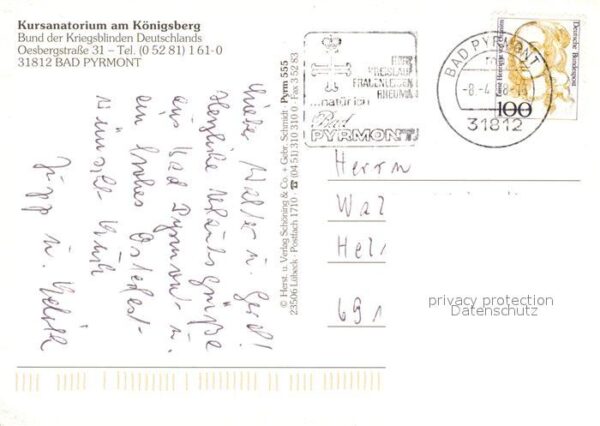 Kursanatorium am Königsberg
Bund der Kriegsblinden Deutschlands
Oesbergstraße 31 – Tel. (0 52 81) 1 61-0
31812 BAD PYRMONT
Herzliche Urlaubsgrüße
aus Bad Pyrmont u.
ein frohes Osterfest
wünscht Euch
© Herst. u. Verlag Schöning & Co. + Gebr. Schmidt · Pyrm 555
23506 Lübeck · Postfach 1710 · ☎ (04 51) 310 310 0 · Fax 3 52 83
HERZ
KREISLAUF
FRAUENLEIDEN
RHEUMA
...natürlich
Bad
PYRMONT
BAD PYRMONT
31812
Deutsche Bundespost
100
Herrn
Wal
Hel
691
privacy protection
Datenschutz